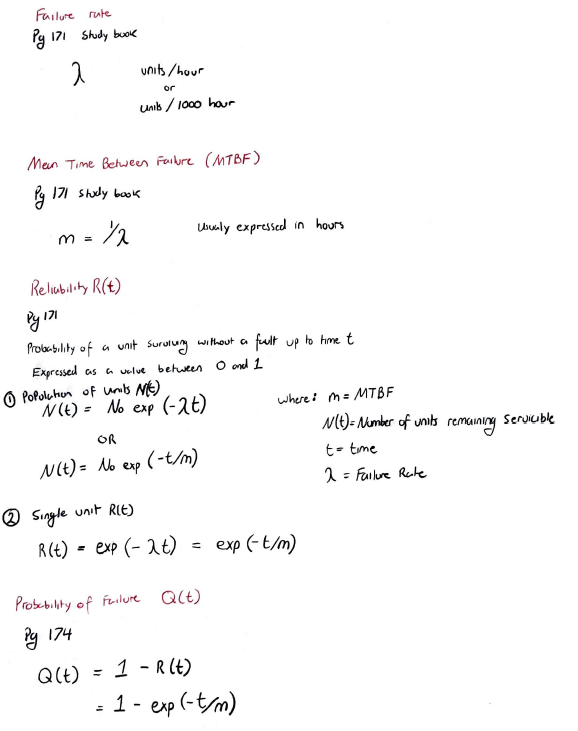 Failure rate
Pg 171 Study book
λ units/hour
or
units / 1000 hour
Mean Time Between Failure (MTBF)
Pg 171 Study book
m = 1/λ Usualy expressed in hours
Reliability R(t)
Pg 171
Probability of a unit surviving without a fault up to time t
Expressed as a value between 0 and 1
① Population of units N(t)
N(t) = No exp (-λt)
OR
N(t) = No exp (-t/m)
where: m = MTBF
N(t) = Number of units remaining servicible
t = time
λ = Failure Rate
② Single unit R(t)
R(t) = exp (- λt) = exp (-t/m)
Probability of Failure Q(t)
Pg 174
Q(t) = 1 - R(t)
= 1 - exp (-t/m)